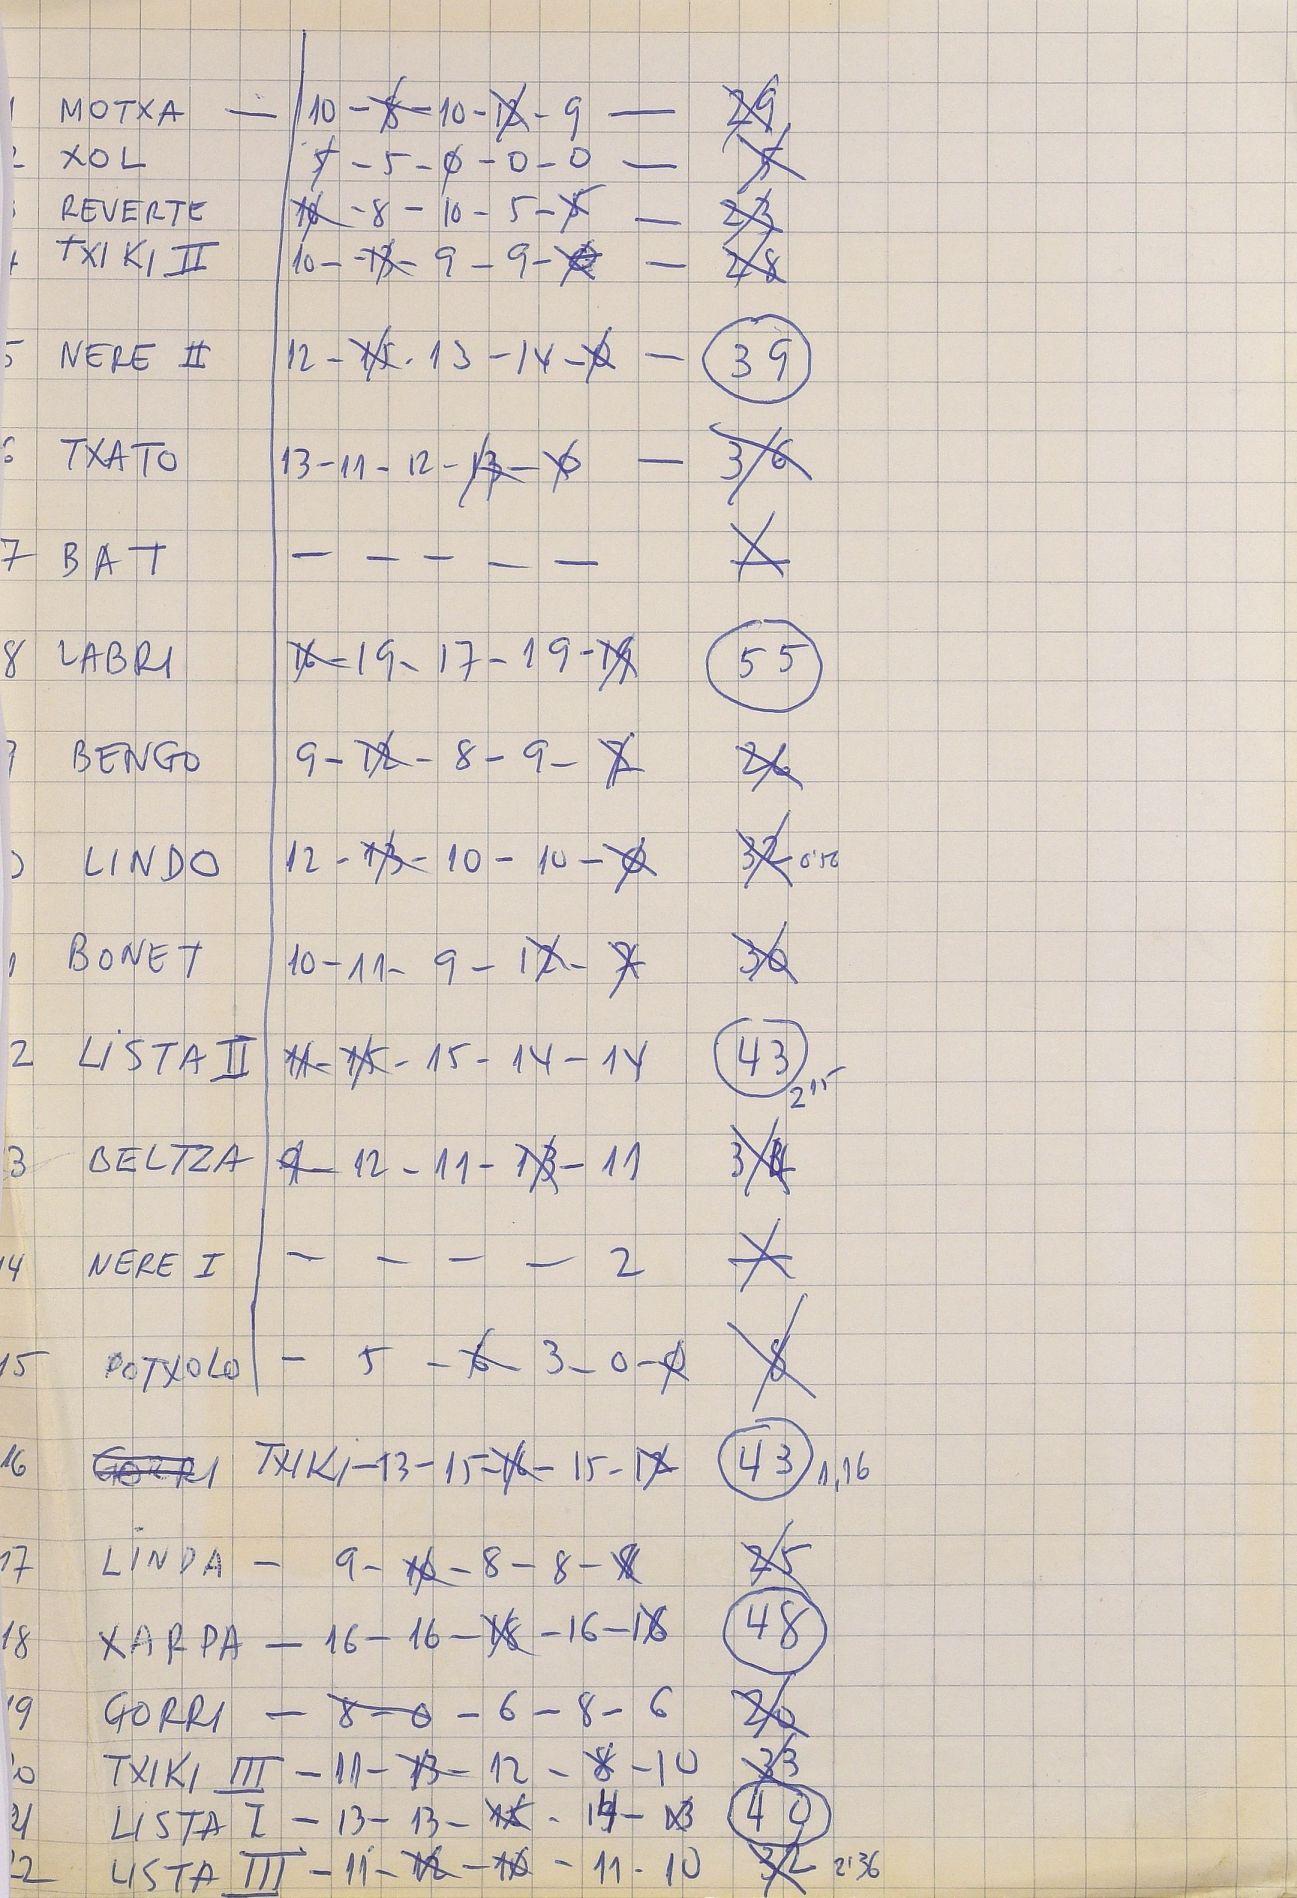 1 MOTXA — 10 - 8 - 10 - 12 - 9 — 29
2 XOL 5 - 5 - 0 - 0 - 0 — 5
REVERTE - 8 - 10 - 5 - 5 — 23
TXIKI II 10 - 13 - 9 - 9 - — 28
5 NERE II 12 - 15 - 13 - 14 - 0 — 39
6 TXATO 13 - 11 - 12 - 13 - 0 — 36
7 BAT — — — — —
8 LABRI 16 - 19 - 17 - 19 - 19 55
9 BENGO 9 - 12 - 8 - 9 - 26
LINDO 12 - 13 - 10 - 10 - 0 32
1 BONET 10 - 11 - 9 - 12 - 7 30
2 LISTA II 11 - 15 - 15 - 14 - 14 43 2'15
3 BELTZA 9 - 12 - 11 - 13 - 11 34
14 NERE I — — — — 2
15 POTXOLO - 5 - 6 - 3 - 0 - 0 8
16 GORRI TXIKI - 13 - 15 - 16 - 15 - 12 43 1,16
17 LINDA - 9 - 10 - 8 - 8 - 8 25
18 XARPA - 16 - 16 - 18 - 16 - 16 48
19 GORRI - 8 - 0 - 6 - 8 - 6 20
20 TXIKI III - 11 - 13 - 12 - 8 - 10 33
21 LISTA I - 13 - 13 - 15 - 14 - 13 40
22 LISTA III - 11 - 12 - 10 - 11 - 10 32 2'36